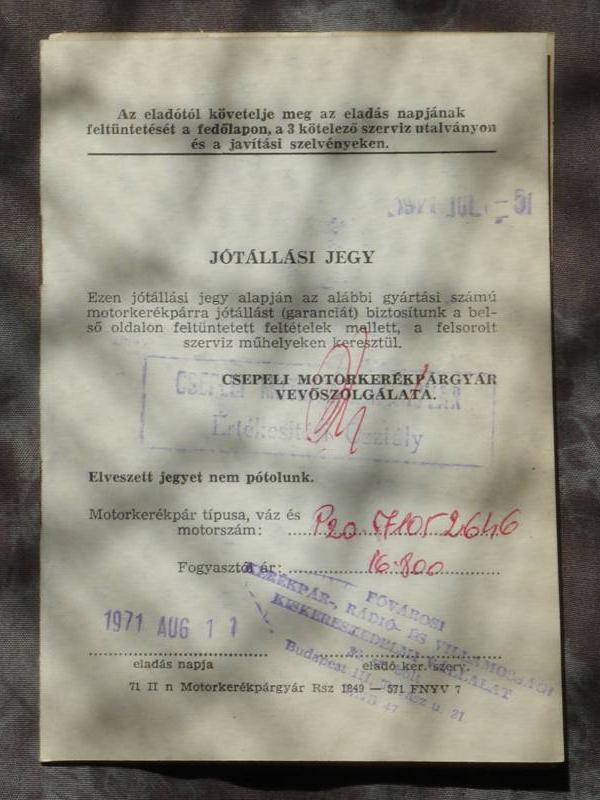 Az eladótól követelje meg az eladás napjának
feltüntetését a fedőlapon, a 3 kötelező szerviz utalványon
és a javítási szelvényeken.
JÓTÁLLÁSI JEGY
Ezen jótállási jegy alapján az alábbi gyártási számú
motorkerékpárra jótállást (garanciát) biztosítunk a bel-
ső oldalon feltüntetett feltételek mellett, a felsorolt
szerviz műhelyeken keresztül.
CSEPELI MOTORKERÉKPÁRGYÁR
VEVŐSZOLGÁLATA.
CSEPELI
Értékesítési Osztály
Elveszett jegyet nem pótolunk.
Motorkerékpár típusa, váz és
motorszám: P20 7105 2646
Fogyasztói ár: 16.800
FŐVÁROSI
KERÉKPÁR-, RÁDIÓ- ÉS VILLAMOSSÁGI
KISKERESKEDELMI VÁLLALAT
Budapest III.
u. 21
1971 AUG 11
eladás napja
eladó ker. szerv.
71 II n Motorkerékpárgyár Rsz 1849 — 571 FNYV 7